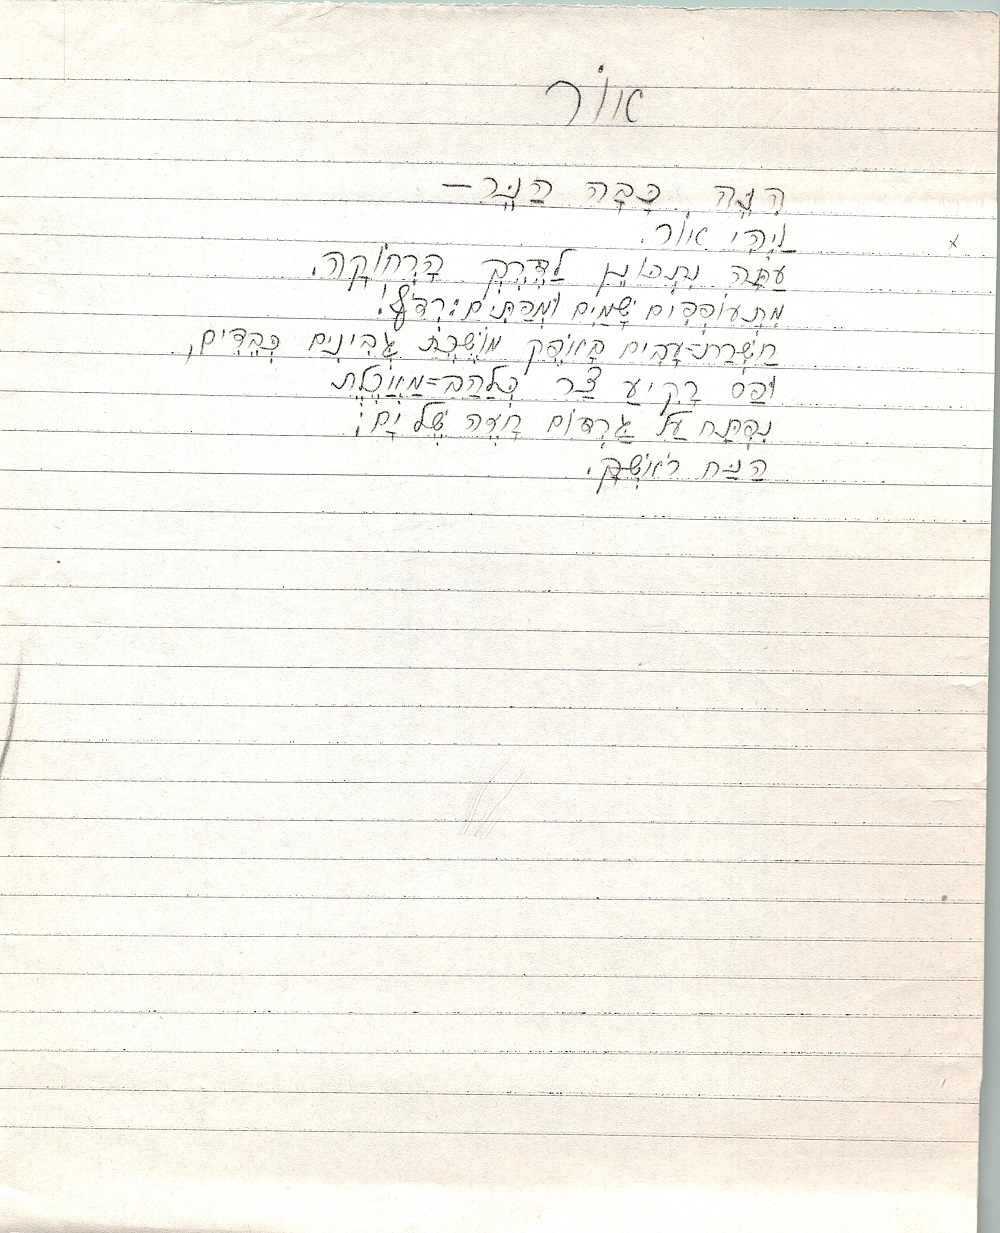 אוֹר
הִנֵּה כָּבָה הַנֵּר –
וַיְהִי אוֹר.
עַתָּה נִתְכּוֹנֵן לַדֶּרֶךְ הָרְחוֹקָה.
מִתְעוֹפְפִים שָׁמַיִם וּמְפַתִּים:
חַשְׁרַת=עָבִים בָּאוֹפֶק מוֹשֶׁכֶת גְּבִינִים כְּבֵדִים,
וּפַס רָקִיעַ צַר כְּלַהַב=מַאֲכֶלֶת
נִפְתָּח עַל גַּרְדּוֹם חָזֶה שֶׁל יָם;
הַנַּח רֹאשְׁךָ.